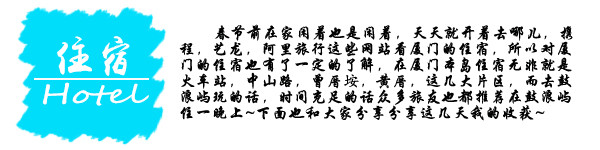 住宿
Hotel
春节前在家闲着也是闲着，天天就开着去哪儿，携
程，艺龙，阿里旅行这些网站看厦门的住宿，所以对厦
门的住宿也有了一定的了解，在厦门本岛住宿无非就是
火车站，中山路，曾厝垵，黄厝，这几大片区，而去鼓
浪屿玩的话，时间充足的话众多旅友也都推荐在鼓浪屿
住一晚上~下面也和大家分享分享这几天我的收获~